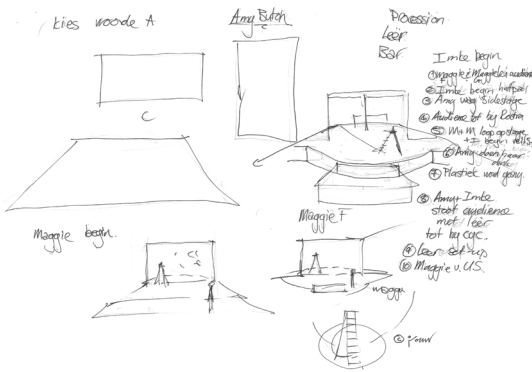 kies woorde A
Amy Butoh
C
Procession
Leër
Bar.
C
Imke begin
① Maggie
② Imke begin halfpad
③ Amy weg sidestage
④ Audience tot by Rostra
⑤ M+M loop op stage
+ I begin
⑥ Amy
⑦ Plastiek word gang.
⑧ Amy + Imke
stoot audience
met leër
tot by cyc.
⑨ Leer set-up
⑩ Maggie v. U.S.
Maggie begin.
Maggie F
maggie